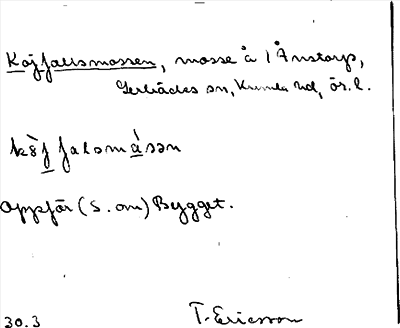 Kojfallsmossen, mosse å 1 Ånstorp,
Gerbäcks sn, Kumla hd, ör. l.
kö̀j falomásən
Uppför (S. om) Bygget.
30.3 T. Ericsson